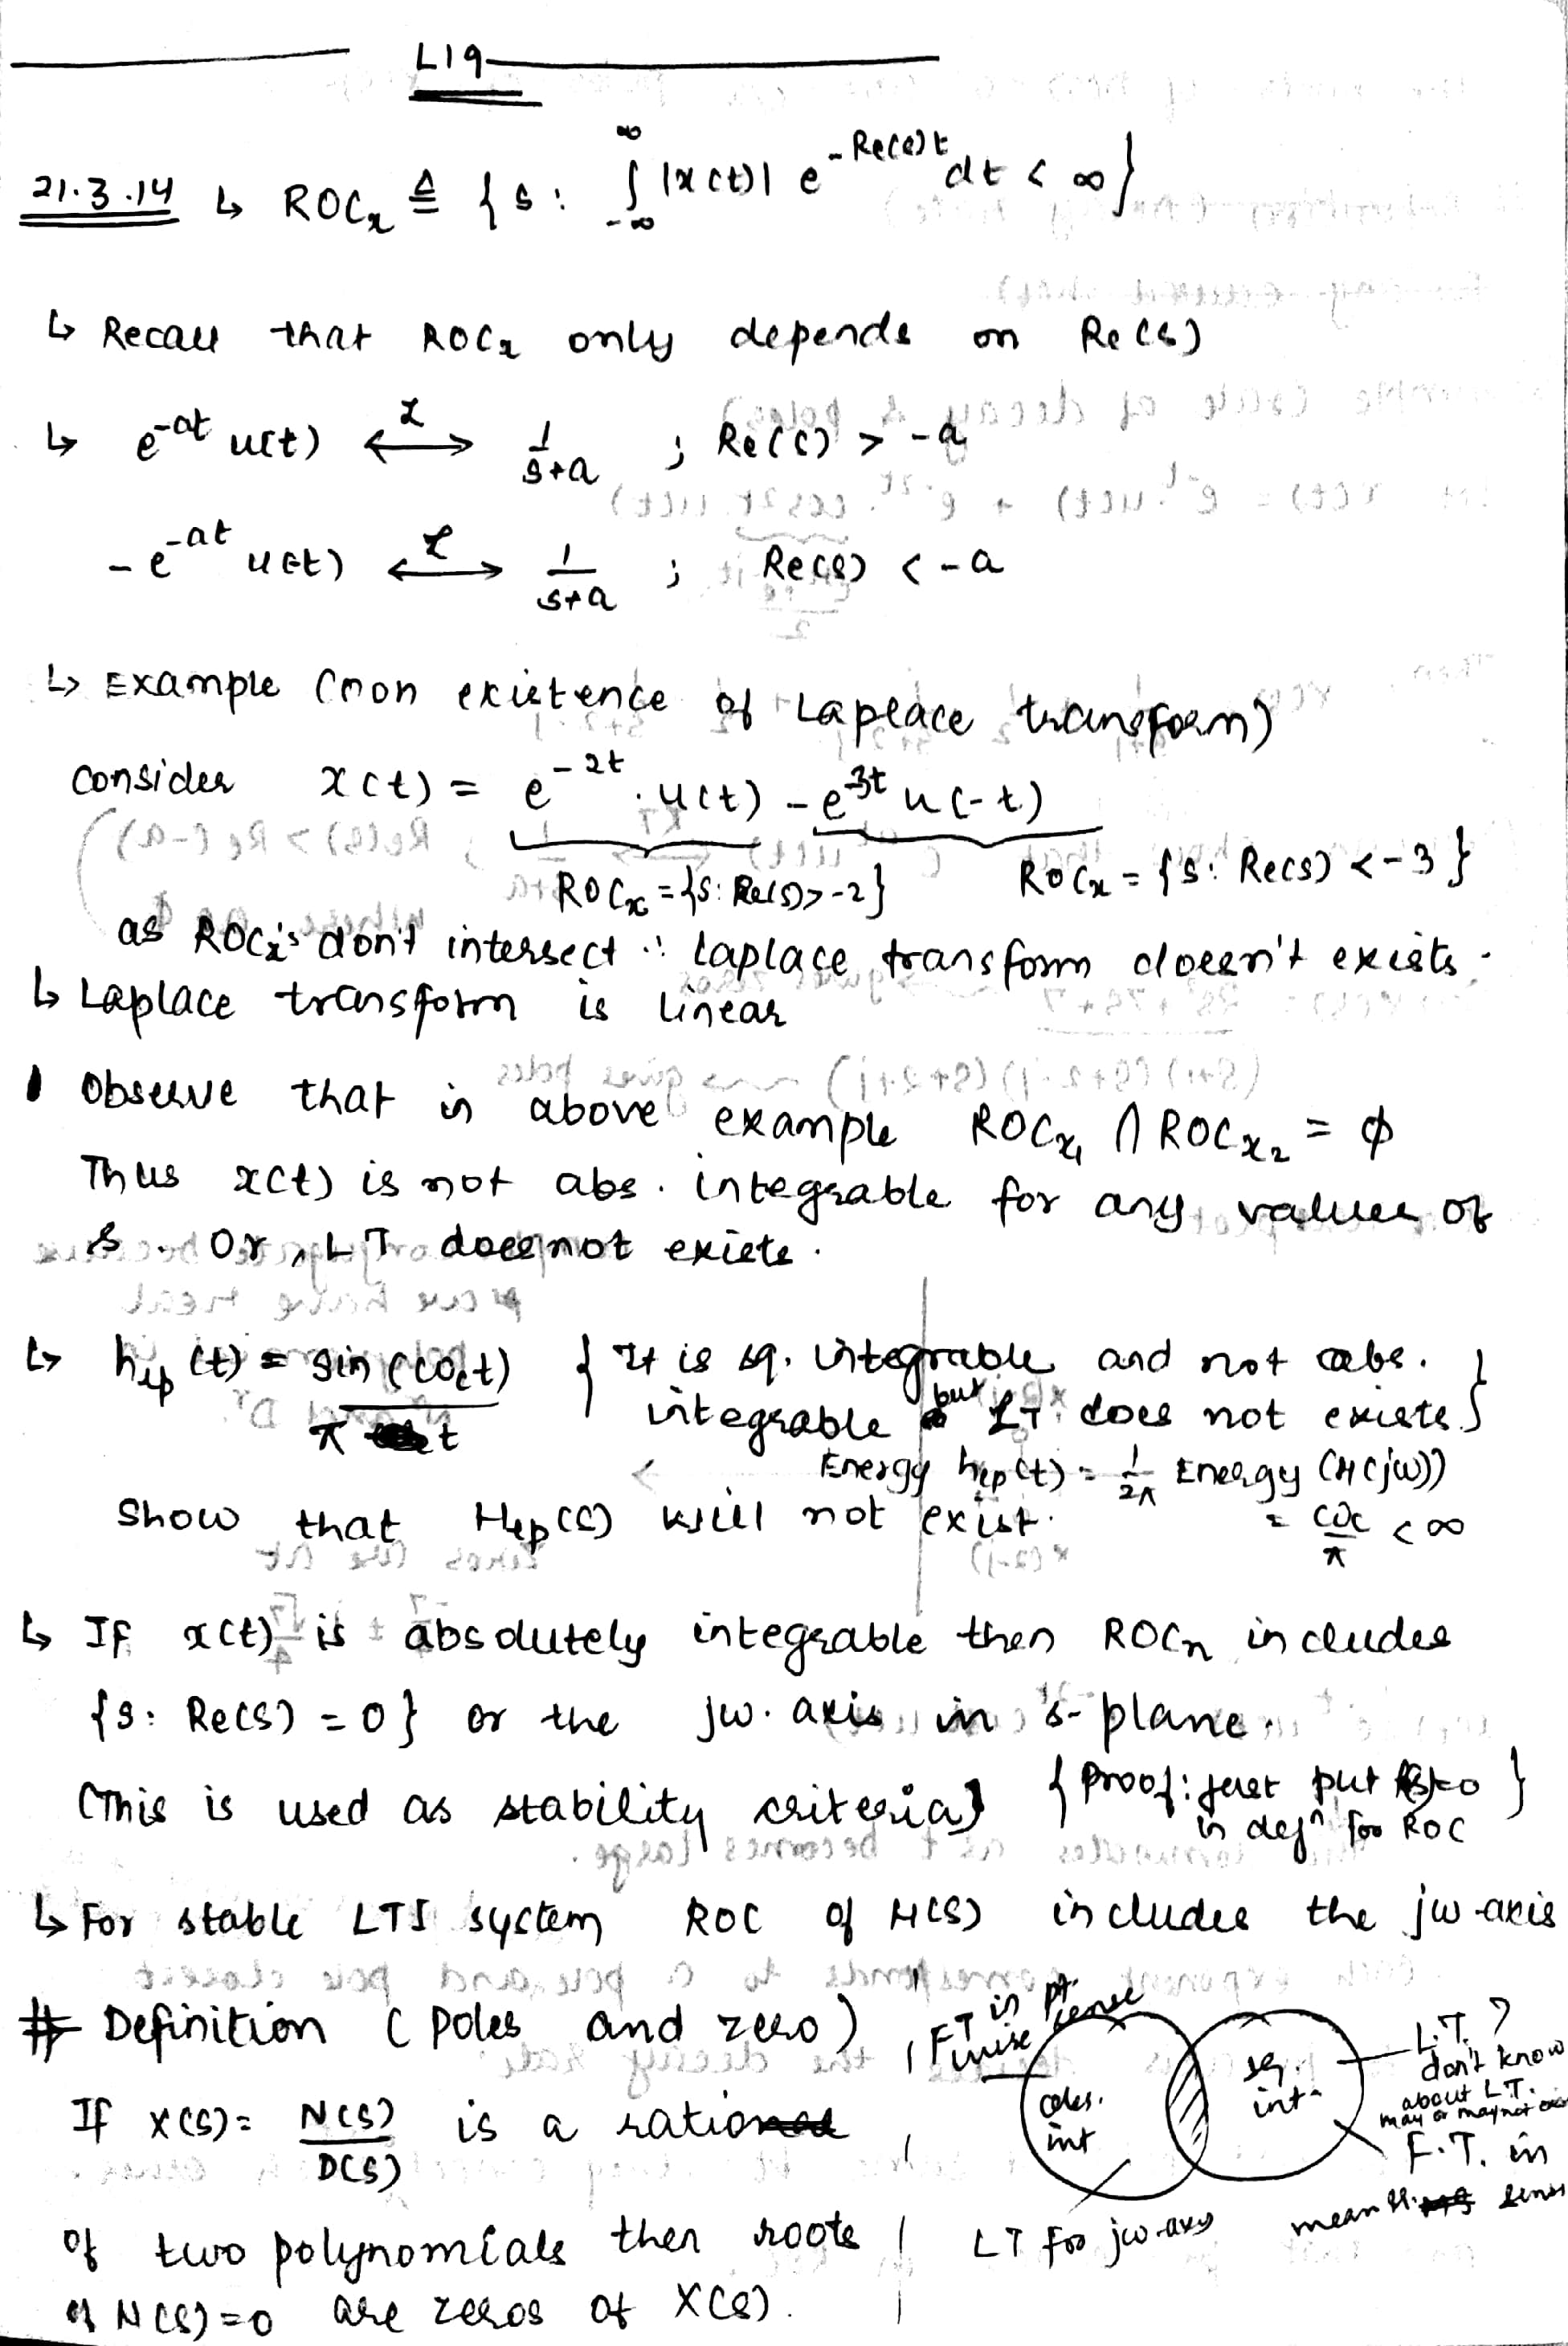 L19
21.3.14 ↳ ROCₓ ≜ { s : ∫_{-∞}^{∞} |x(t)| e^{-Re(s)t} dt < ∞ }
↳ Recall that ROCₓ only depends on Re(s)
↳ e^{-at} u(t) ⟷^ℒ 1/(s+a) ; Re(s) > -a
-e^{-at} u(-t) ⟷^ℒ 1/(s+a) ; Re(s) < -a
↳ Example (non existence of Laplace transform)
Consider x(t) = e^{-2t} . u(t) - e^{-3t} u(-t)
ROCₓ = {s: Re(s) > -2} ROCₓ = {s: Re(s) < -3}
as ROCₓ's don't intersect ∴ Laplace transform doesn't exists.
↳ Laplace transform is linear
Observe that in above example ROC_{x₁} ∩ ROC_{x₂} = φ
Thus x(t) is not abs. integrable for any values of
s. Or, LT does not exists.
↳ h_{lp}(t) = sin(ω_c t) / π t { It is sq. integrable and not abs.
integrable but LT does not exists }
Energy h_{lp}(t) = 1/2π Energy (H(jω))
= ω_c/π < ∞
Show that H_{lp}(s) will not exist.
↳ If x(t) is absolutely integrable then ROCₓ includes
{s: Re(s) = 0} or the jω-axis in s-plane.
(This is used as stability criteria) { Proof: just put Re(s)=0
in defⁿ for ROC }
↳ For stable LTI system ROC of H(s) includes the jω-axis
# Definition (Poles and zero)
If X(s) = N(s)/D(s) is a ratio
of two polynomials then roots
of N(s)=0 are zeros of X(s).
FT in pt.
wise sense
abs.
int
sq.
int.
L.T. ?
don't know
about L.T.
may or may not exist
F.T. in
mean sq. sense
LT for jω-axis